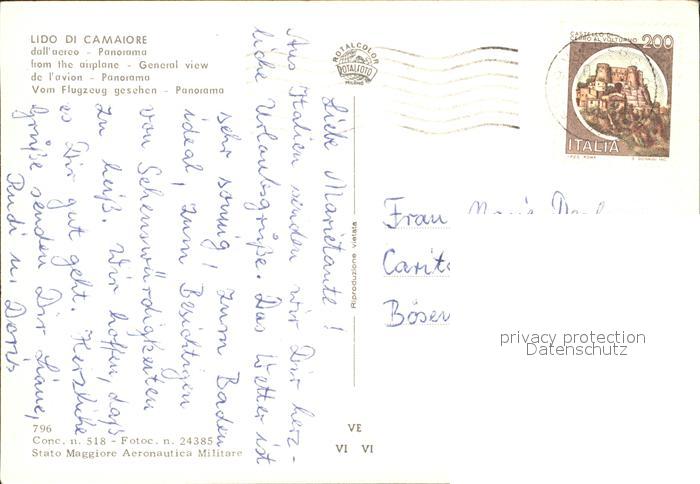 LIDO DI CAMAIORE
dall'aereo - Panorama
from the airplane - General view
de l'avion - Panorama
Vom Flugzeug gesehen - Panorama
ROTALCOLOR
ROTALFOTO
MILANO
CASTELLO DI
CERRO AL VOLTURNO
200
ITALIA
Liebe Marietante!
Aus Italien senden wir Dir herz-
liche Urlaubsgrüße. Das Wetter ist
sehr sonnig! Zum Baden
ideal, zum Besichtigen
von Sehenswürdigkeiten
zu heiß. Wir hoffen, daß
es Dir gut geht. Herzliche
Grüße senden Dir Liane,
Rudi u. Doris
Riproduzione vietata
Frau
privacy protection
Datenschutz
796
Conc. n. 518 - Fotoc. n. 24385
Stato Maggiore Aeronautica Militare
VE
VI VI